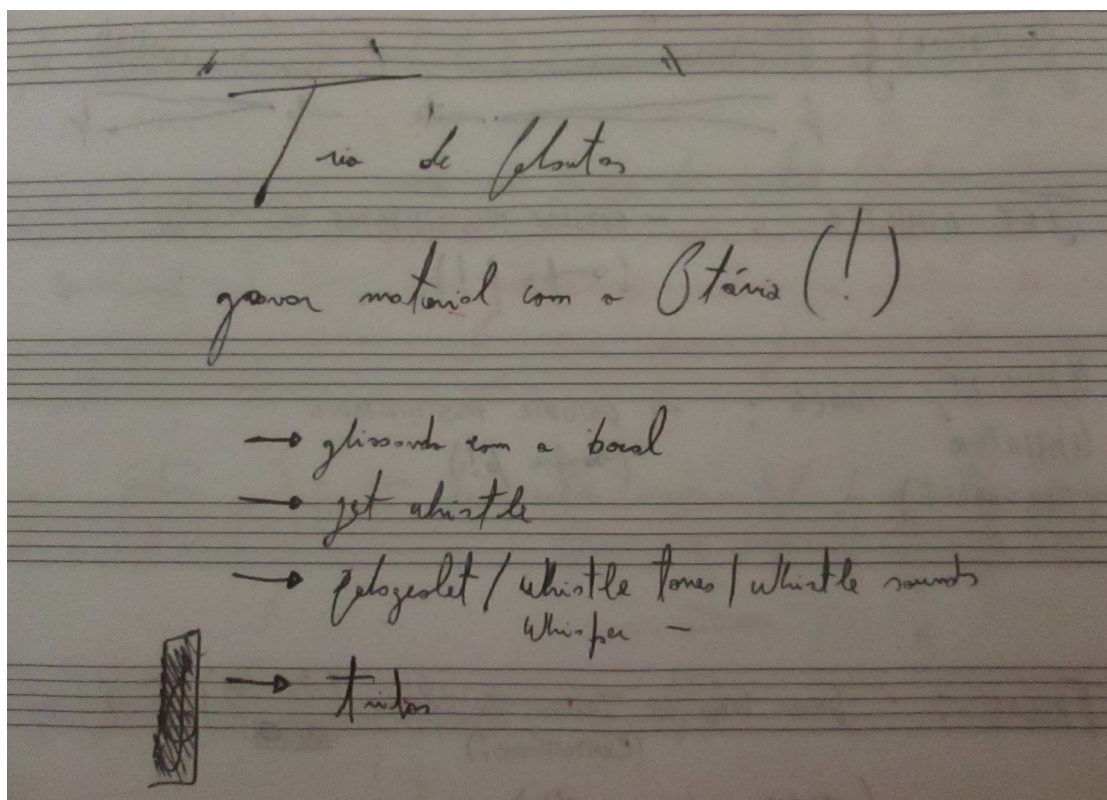 " Trio de flautas "
gravar material com a Otávia (!)
→ glissando com o bocal
→ jet whistle
→ flageolet / whistle tones / whistle sounds
whisper –
→ trilos